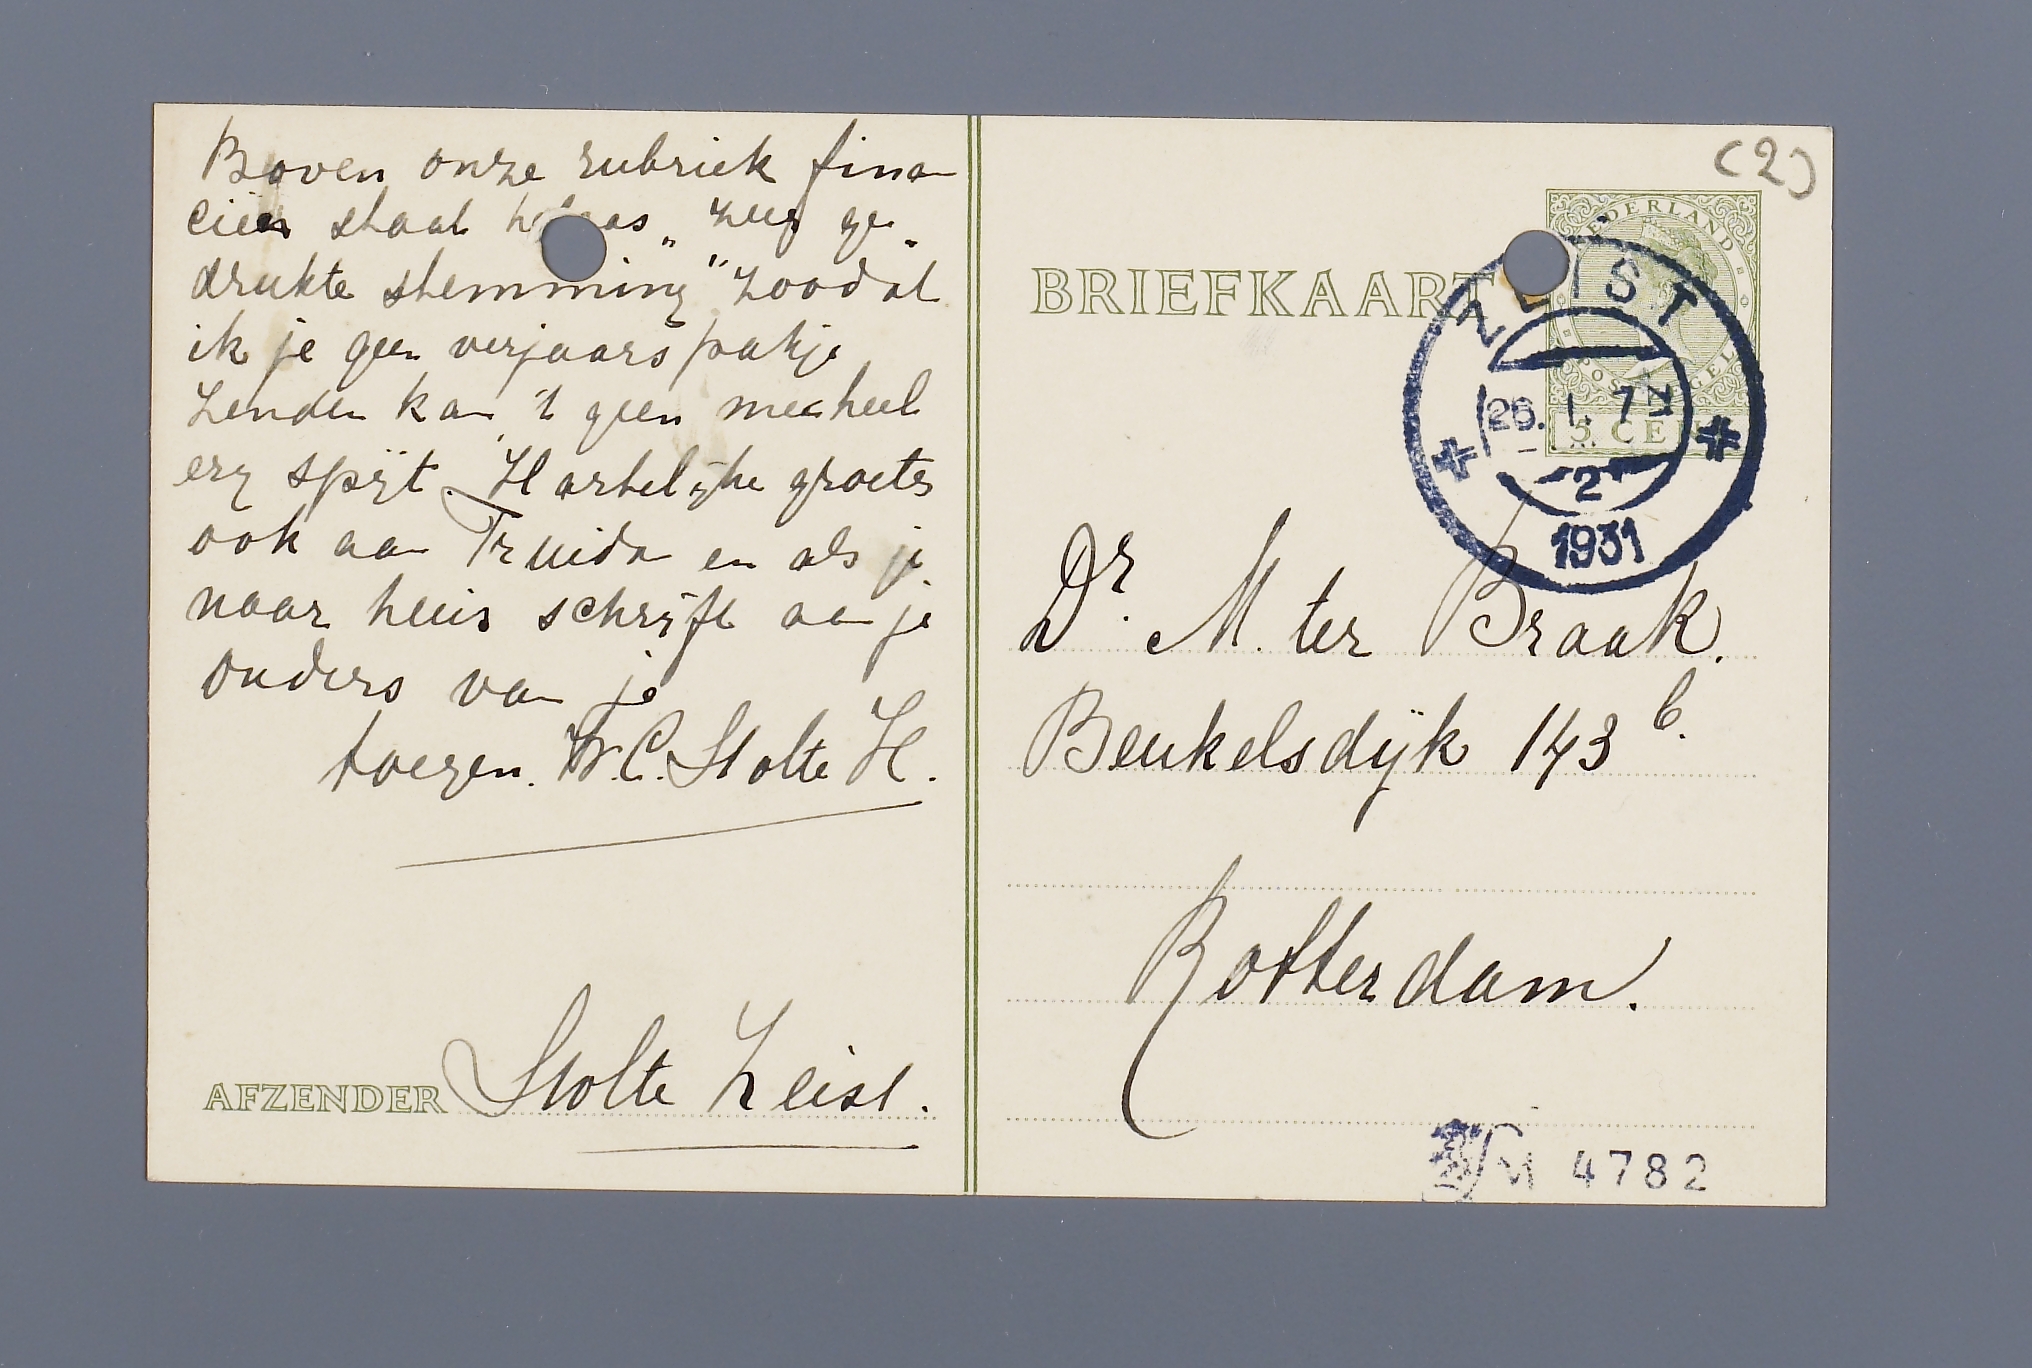 Boven onze rubriek finan
cien staat helaas „zeer ge„
drukte stemming" zoodat
ik je geen verjaarspakje
zenden kan 't geen me heel
erg spijt. Hartelijke groeten
ook aan Truida en als je
naar huis schrijft aan je
ouders van je
toegen. W. C. Stolte H.
AFZENDER Stolte Zeist.
(2)
NEDERLAND
POSTZEGEL
5 CENT
BRIEFKAART
ZEIST
26. 1. 7
2
1931
Dr. M. ter Braak.
Beukelsdijk 143 b.
Rotterdam.
LM 4782